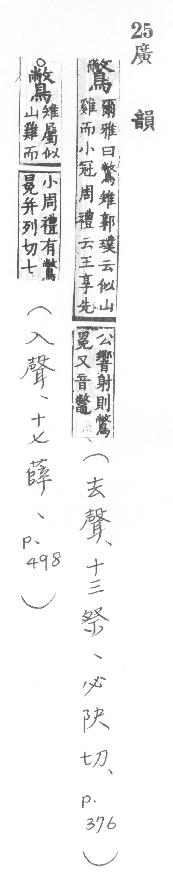 25廣韻
鷩爾雅曰鷩雉郭璞云似山
雞而小冠周禮云王享先
公饗射則鷩
冕又音鷩
(去聲、十三祭、必袂切、p.376)
鷩雉屬似
山雞而
小周禮有鷩
冕并列切七
(入聲、十七薛、p.498)